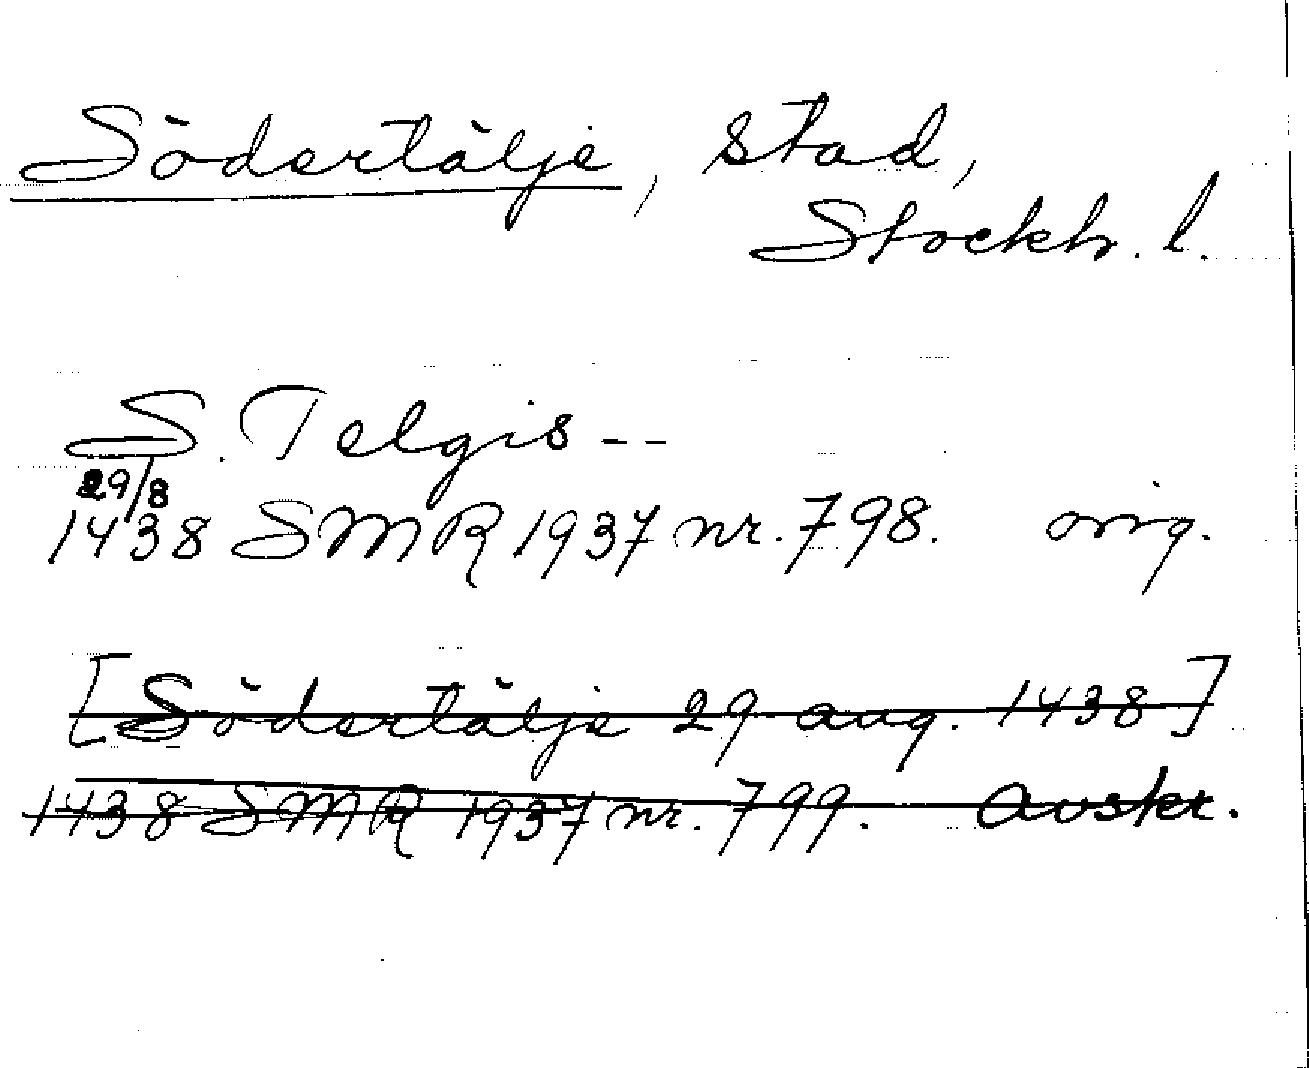 Södertälje, stad,
Stockh. l.
S. Telgis --
29/8
1438 SMR 1937 nr. 798. orig.
[Södertälje 29 aug. 1438]
1438 SMR 1937 nr. 799. Avskr.